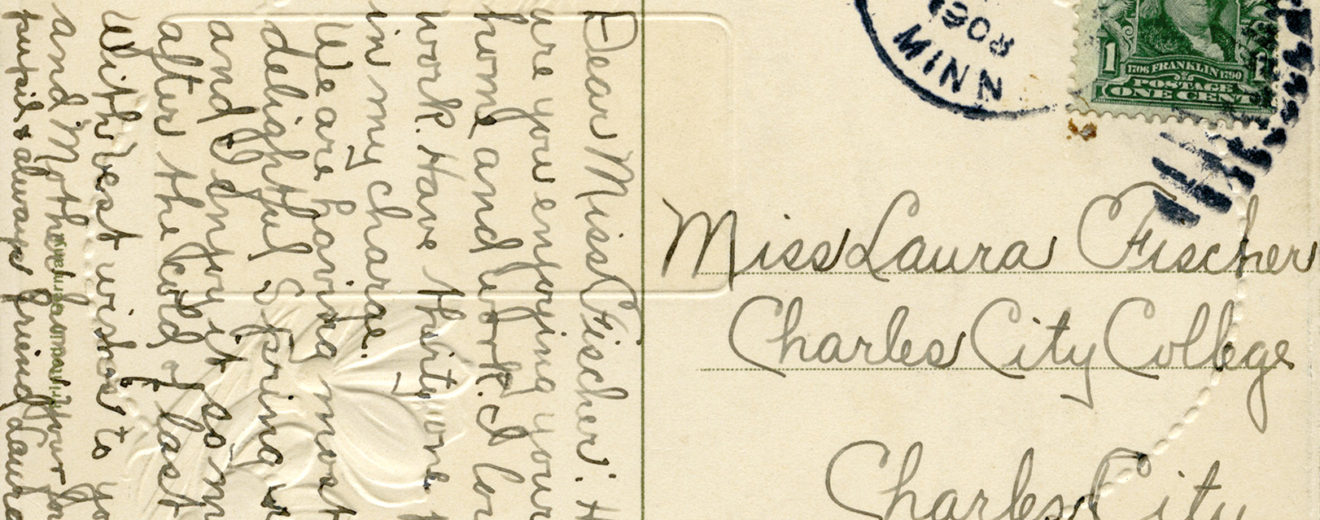 Dear Miss Fischer: H
are you enjoying your
home and work. I lov
work. Have thirty one
in my charge.
We are having most
delightful Spring
and I enjoy it so m
after the cold of last
With best wishes to yo
and Mother
pupil & always friend Laura
NNIM
1906
1
1706 FRANKLIN 1790
POSTAGE
ONE CENT
Miss Laura Fischer
Charles City College
Charles City